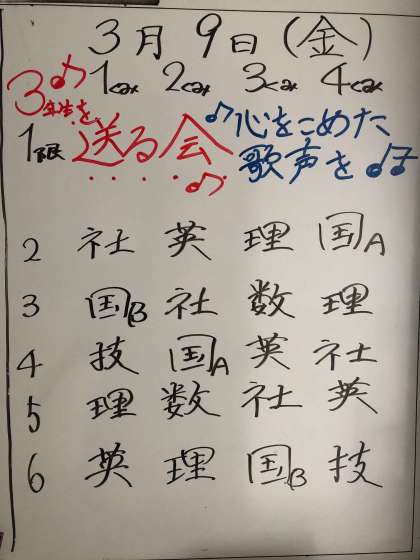 3月9日(金)
1くみ 2くみ 3くみ 4くみ
3年生を
1限 送る会 心をこめた
歌声を
2 社 英 理 国A
3 国B 社 数 理
4 技 国A 英 社
5 理 数 社 英
6 英 理 国B 技